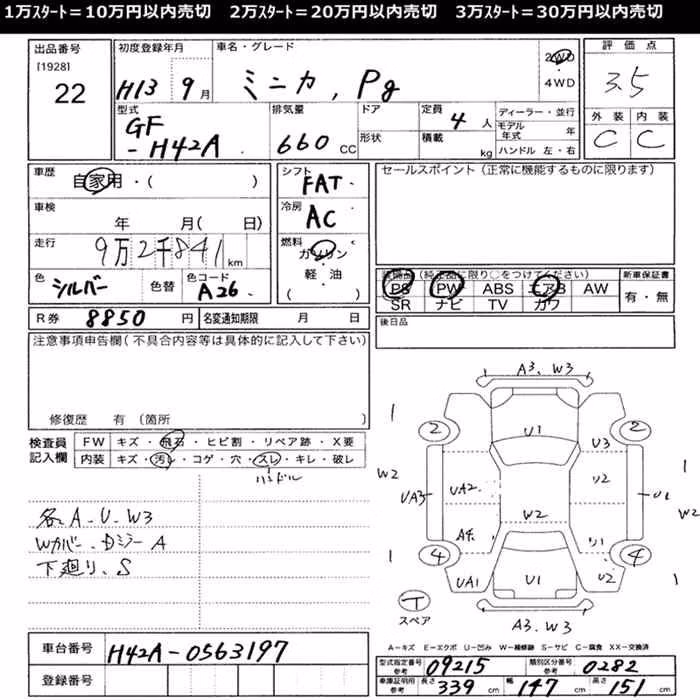 1万ｽﾀｰﾄ＝10万円以内売切　2万ｽﾀｰﾄ＝20万円以内売切　3万ｽﾀｰﾄ＝30万円以内売切
出品番号
[1928]
22
初度登録年月
H13 9月
車名・グレード
ミニカ, Pg
2WD
4WD
評価点
3.5
型式
GF
-H42A
排気量
660 CC
ドア
形状
定員
4人
積載
kg
ディーラー・並行
モデル年式 年
ハンドル 左・右
外装 内装
C C
車歴
自家用・( )
車検
年 月( 日)
走行
9万2千841 km
色
シルバー
色替
色コード
A26
シフト
FAT
冷房
AC
燃料
ガソリン
・
軽・油
( )
セールスポイント（正常に機能するものに限ります）
装備品（純正品に限り○をつけてください）
PS PW ABS エアB AW
SR ナビ TV カワ
新車保証書
有・無
R券 8850 円
名変通知期限 月 日
後日品
注意事項申告欄（不具合内容等は具体的に記入して下さい）
修復歴 有〔箇所 〕
検査員
記入欄
FW キズ・飛石・ヒビ割・リペア跡・X要
内装 キズ・汚レ・コゲ・穴・スレ・キレ・破レ
ハンドル
各A.U.W3
Wカバー.Dミラー A
下廻り.S
A3.W3
1
2
2
U1
U3
W2
UA3
UA2
U2
1
W2
W2
A4
U1
1
4
4
1
UA1
U1
U2
T
スペア
A3.W3
A－キズ E－エクボ U－凹み W－補修跡 S－サビ C－腐食 XX－交換済
車台番号
H42A-0563197
登録番号
型式指定番号 参考 09215
類別区分番号 参考 0282
車庫証明用 参考 長さ 339 cm 幅 147 cm 高さ 151 cm